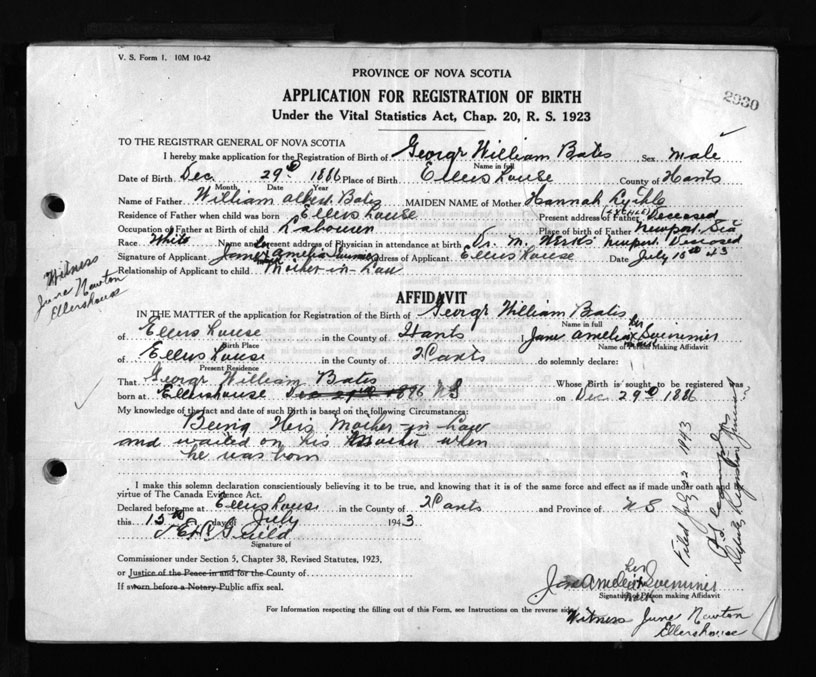 V. S. Form 1. 10M 10-42
PROVINCE OF NOVA SCOTIA
2930
APPLICATION FOR REGISTRATION OF BIRTH
Under the Vital Statistics Act, Chap. 20, R. S. 1923
TO THE REGISTRAR GENERAL OF NOVA SCOTIA
I hereby make application for the Registration of Birth of George William Bates Sex male
Name in full
Date of Birth Dec. 29th 1886 Place of Birth Ellershouse County of Hants
Month Date Year
Name of Father William Albert Bates MAIDEN NAME of Mother Hannah
Residence of Father when child was born Ellershouse Present address of Father Deceased
Occupation of Father at Birth of child Labourer Place of birth of Father Newport Sta
Race White Name and present address of Physician in attendance at birth Dr. M. Newport Deceased
Signature of Applicant Jane Amelia her mark Address of Applicant Ellershouse Date July 15th 43
Relationship of Applicant to child Mother-in-Law
Witness
June Newton
Ellershouse
AFFIDAVIT
IN THE MATTER of the application for Registration of the Birth of George William Bates
Name in full
of Ellershouse in the County of Hants Jane Amelia her mark
Birth Place Name of Person Making Affidavit
of Ellershouse in the County of Hants do solemnly declare:
Present Residence
That George William Bates Whose Birth is sought to be registered was
born at Ellershouse Dec 29th 1886 NS on Dec. 29th 1886
My knowledge of the fact and date of such Birth is based on the following Circumstances:
Being His Mother-in-Law
and waited on his Mother when
he was born
I make this solemn declaration conscientiously believing it to be true, and knowing that it is of the same force and effect as if made under oath and by
virtue of The Canada Evidence Act.
Declared before me at Ellershouse in the County of Hants and Province of NS
this 15th day of July 1943
Guild
Signature of
Commissioner under Section 5, Chapter 38, Revised Statutes, 1923,
or Justice of the Peace in and for the County of
If sworn before a Notary Public affix seal.
Jane Amelia her mark
Signature of Person making Affidavit
For Information respecting the filling out of this Form, see Instructions on the reverse side.
Witness June Newton
Ellershouse
Filed July 22 1943
Deputy Registrar General